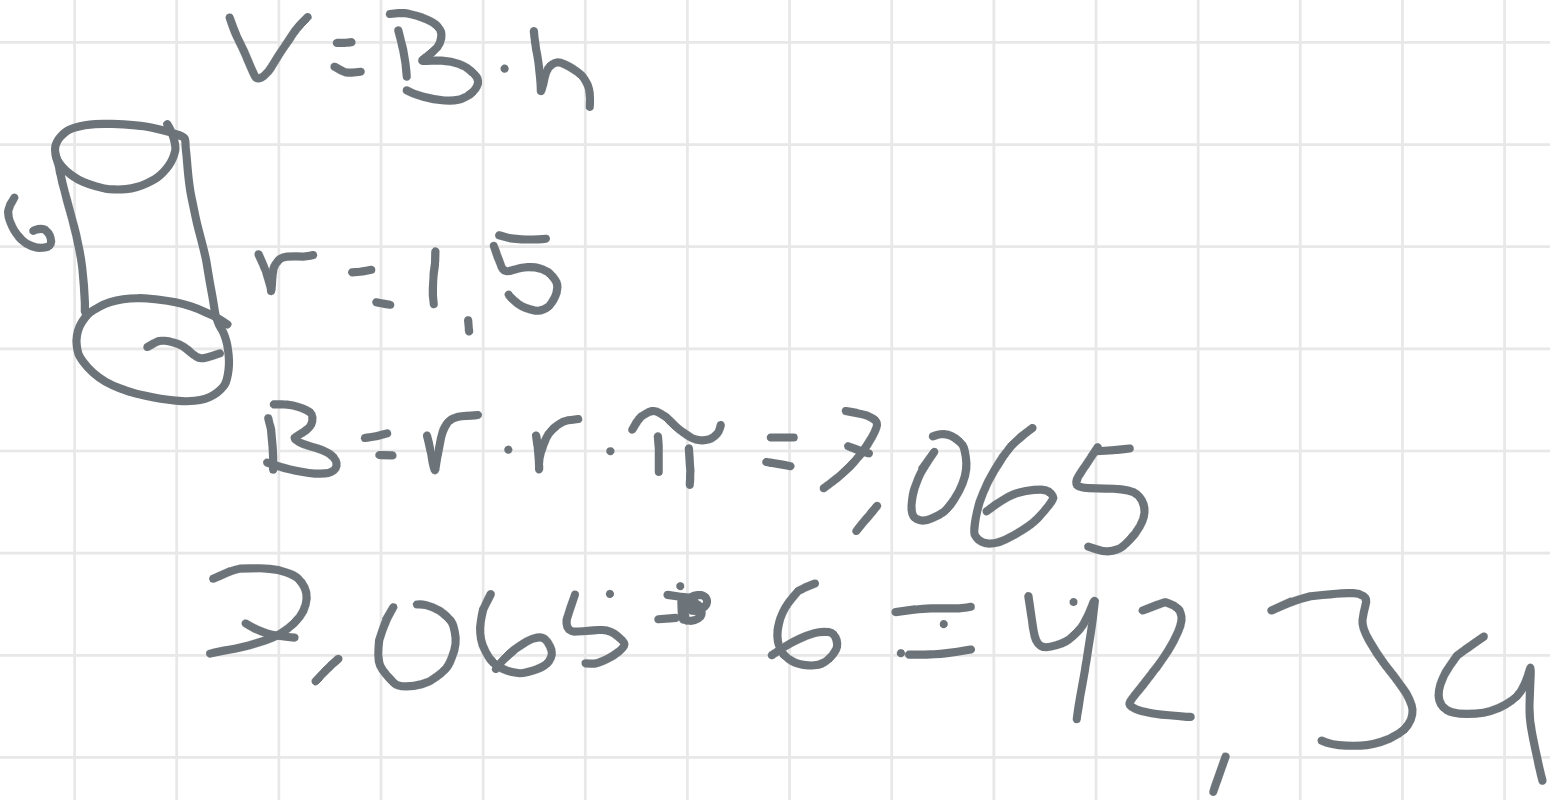 V = B · h
6
r = 1,5
B = r · r · π = 7,065
7,065 · 6 = 42,39